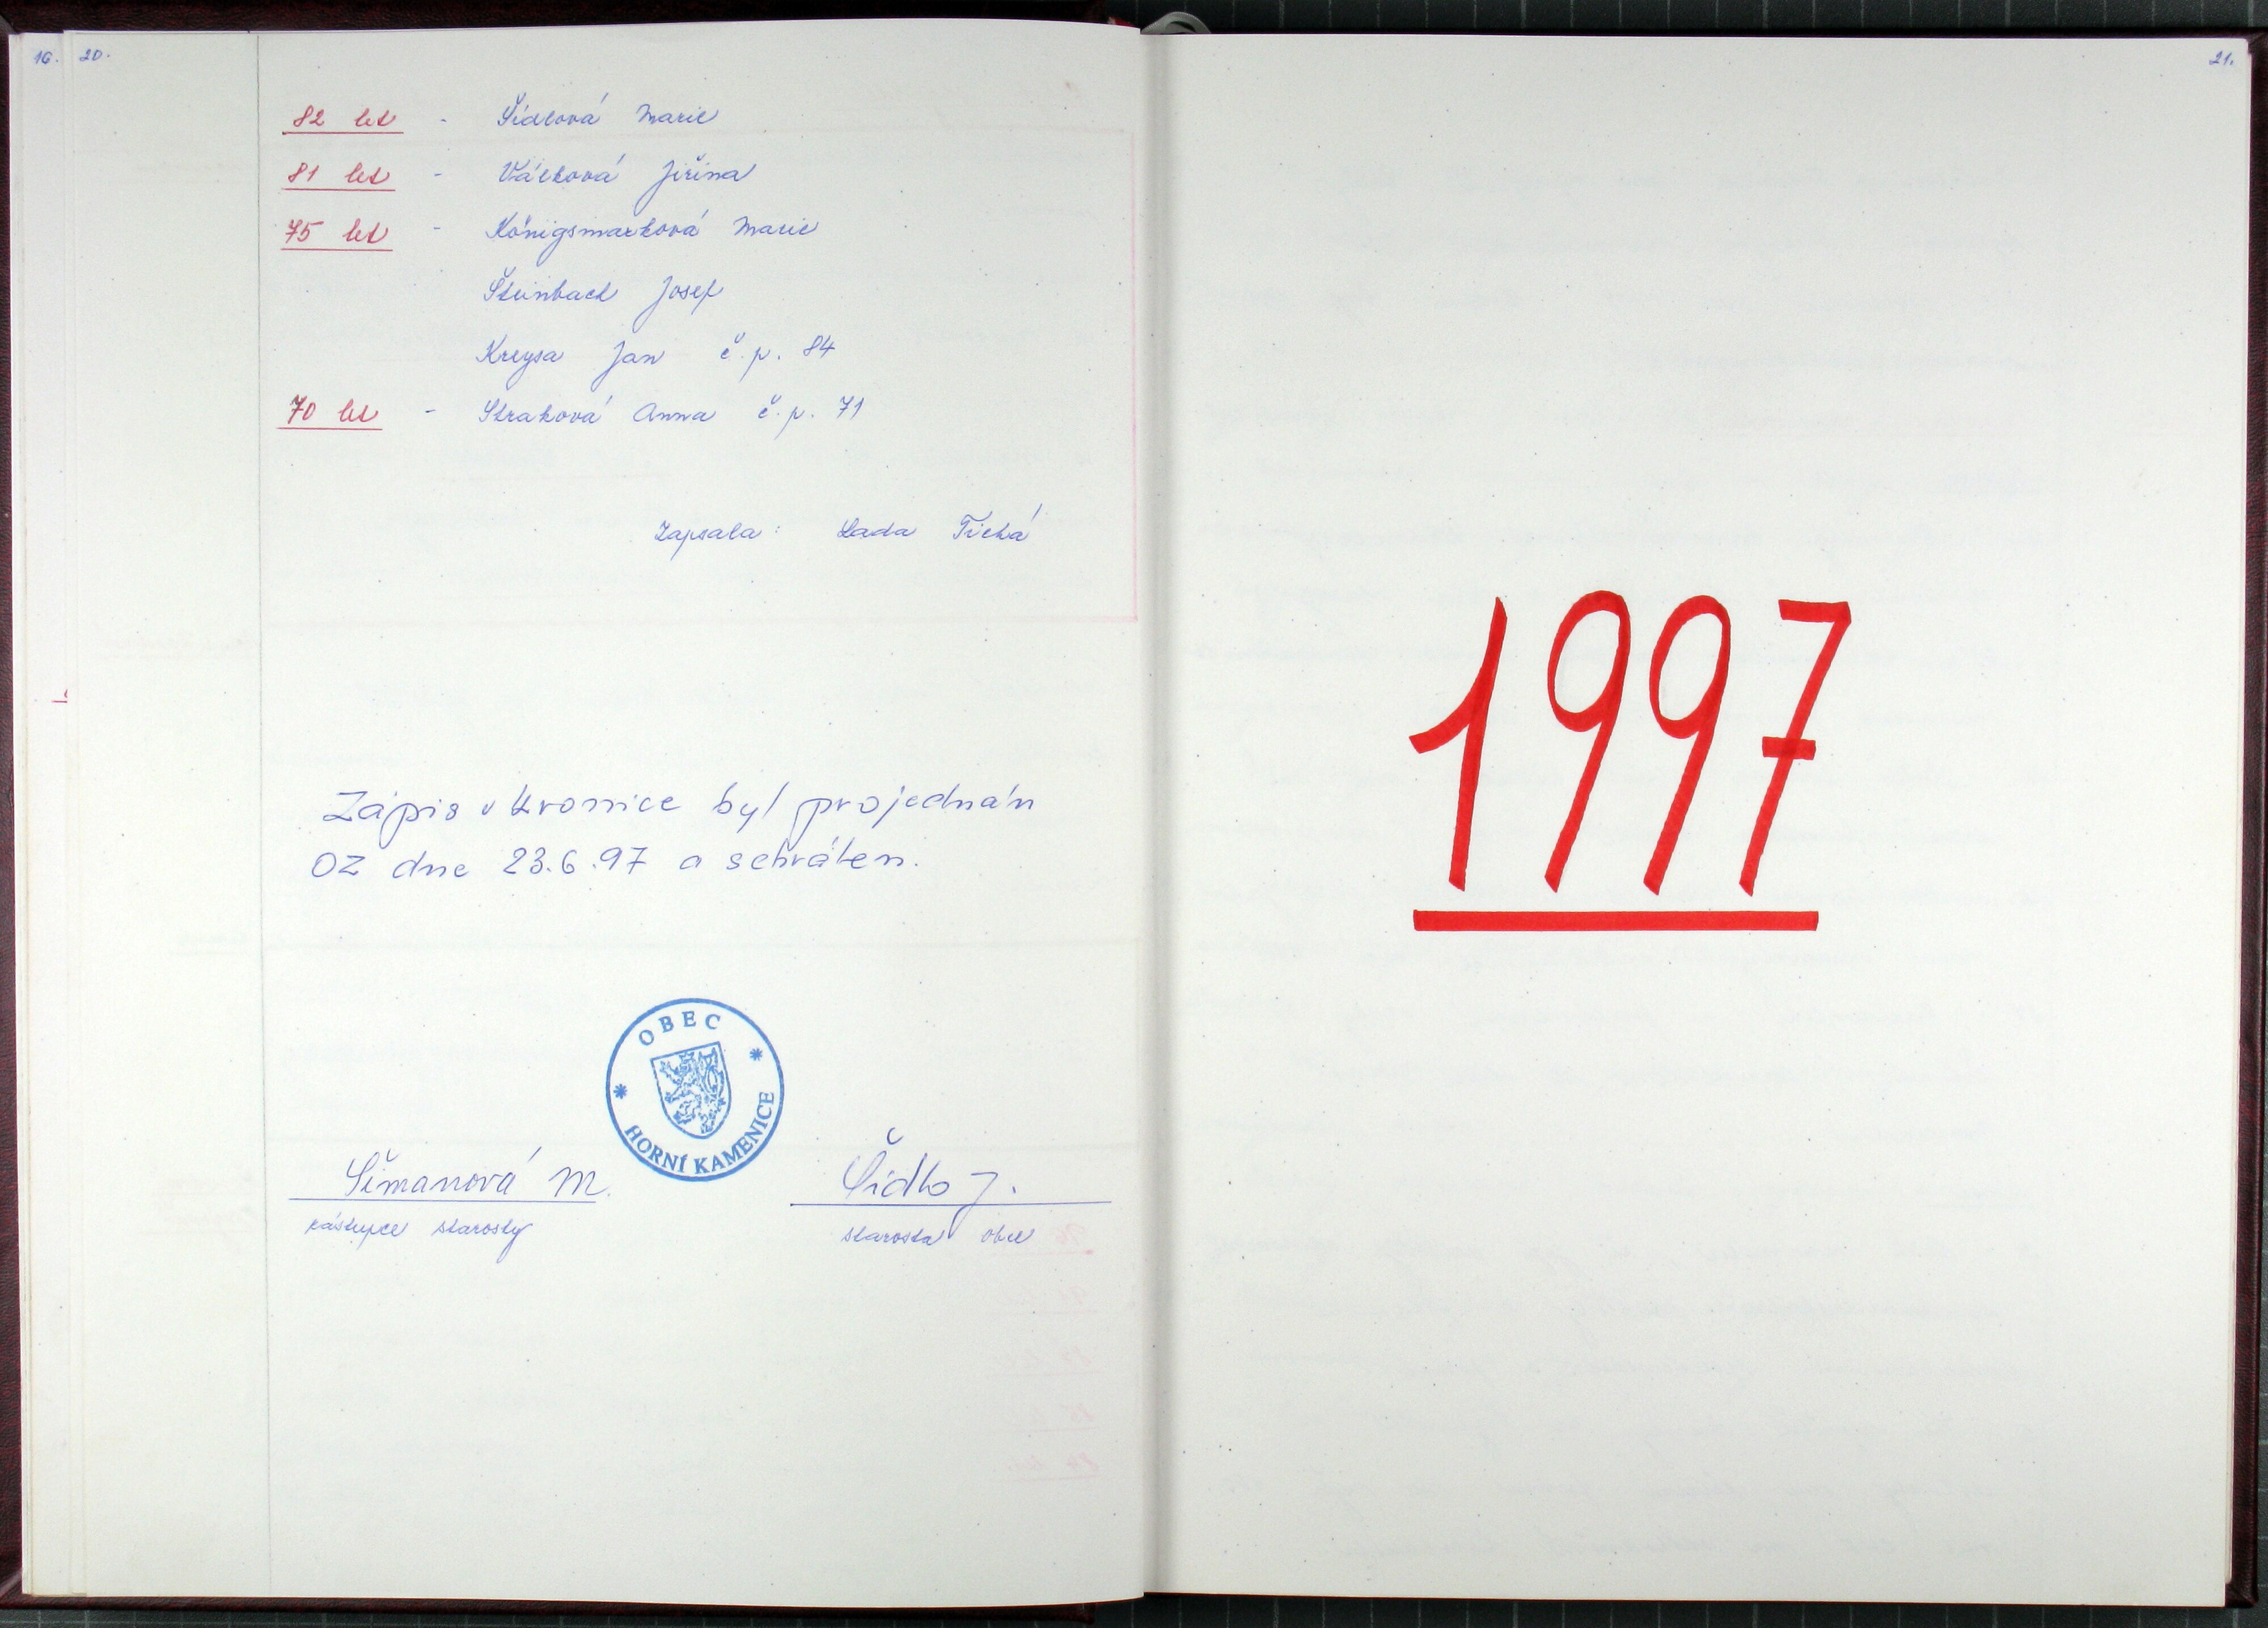 16. 20.
82 let - Šídlová Marie
81 let - Válková Jiřina
75 let - Königsmarková Marie
Šteinbach Josef
Kreysa Jan č.p. 84
70 let - Straková Anna č.p. 71
Zapsala: Lada Tichá
Zápis v kronice byl projednán
OZ dne 23.6.97 a schválen.
OBEC
* *
HORNÍ KAMENICE
Šimanová M.
Šídlo J.
zástupce starosty
starosta obce
21.
1997